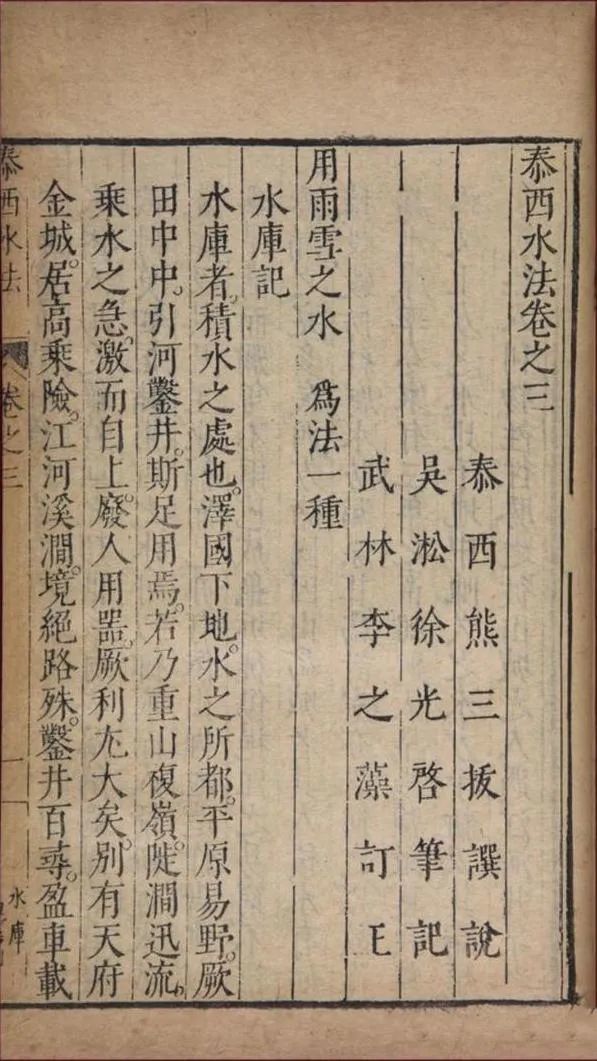 泰西水法卷之三
泰西熊三拔譔說
吳淞徐光啓筆記
武林李之藻訂正
用雨雪之水　爲法一種
水庫記
水庫者。積水之處也。澤國下地。水之所都。平原易野。厥
田中中。引河鑿井。斯足用焉。若乃重山複嶺。陡澗迅流。
乘水之急。激而自上。廢人用器。厥利尢大矣。別有天府
金城。居高乘險。江河溪澗。境絕路殊。鑿井百尋。盈車載
泰西水法
卷之三
一
水庫